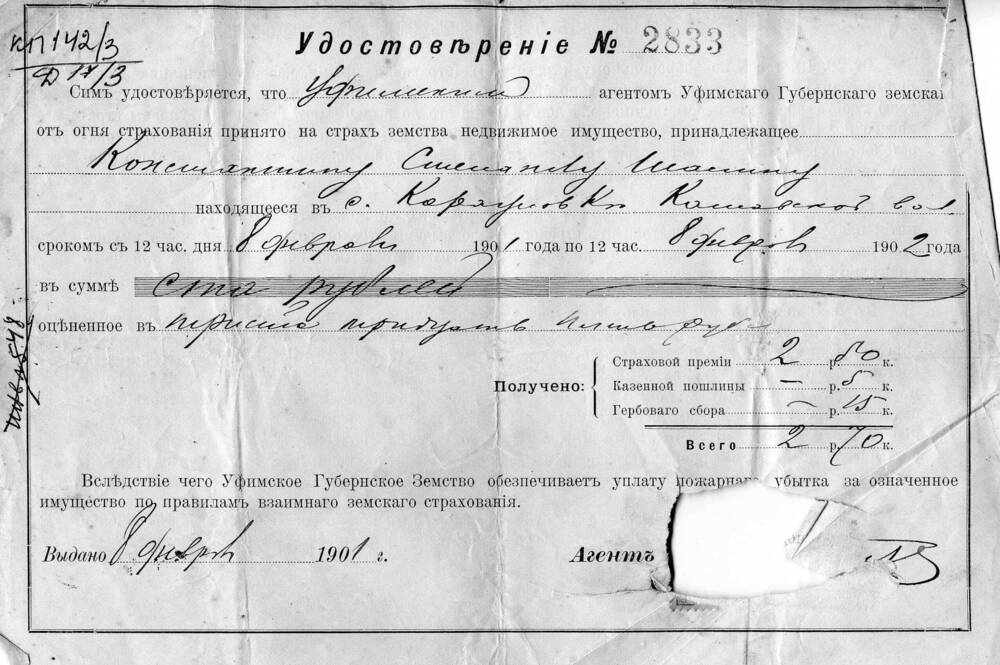 КП 142/3
Д 17/3
Удостовѣреніе № 2833
Симъ удостовѣряется, что Уфимскимъ агентомъ Уфимскаго Губернскаго земскаг
отъ огня страхованія принято на страхъ земства недвижимое имущество, принадлежащее
Константину Степанову
находящееся въ с. Карауловки вол.
срокомъ съ 12 час. дня 8 февраля 1901 года по 12 час. 8 февраля 1902 года
въ суммѣ ста рублей
оцѣненное въ
Страховой преміи 2 р. 50 к.
Получено: Казенной пошлины — р. 5 к.
Гербоваго сбора — р. 15 к.
Всего 2 р. 70 к.
Вслѣдствіе чего Уфимское Губернское Земство обезпечиваетъ уплату пожарнаго убытка за означенное
имущество по правиламъ взаимнаго земскаго страхованія.
Выдано 8 февраля 1901 г. Агентъ